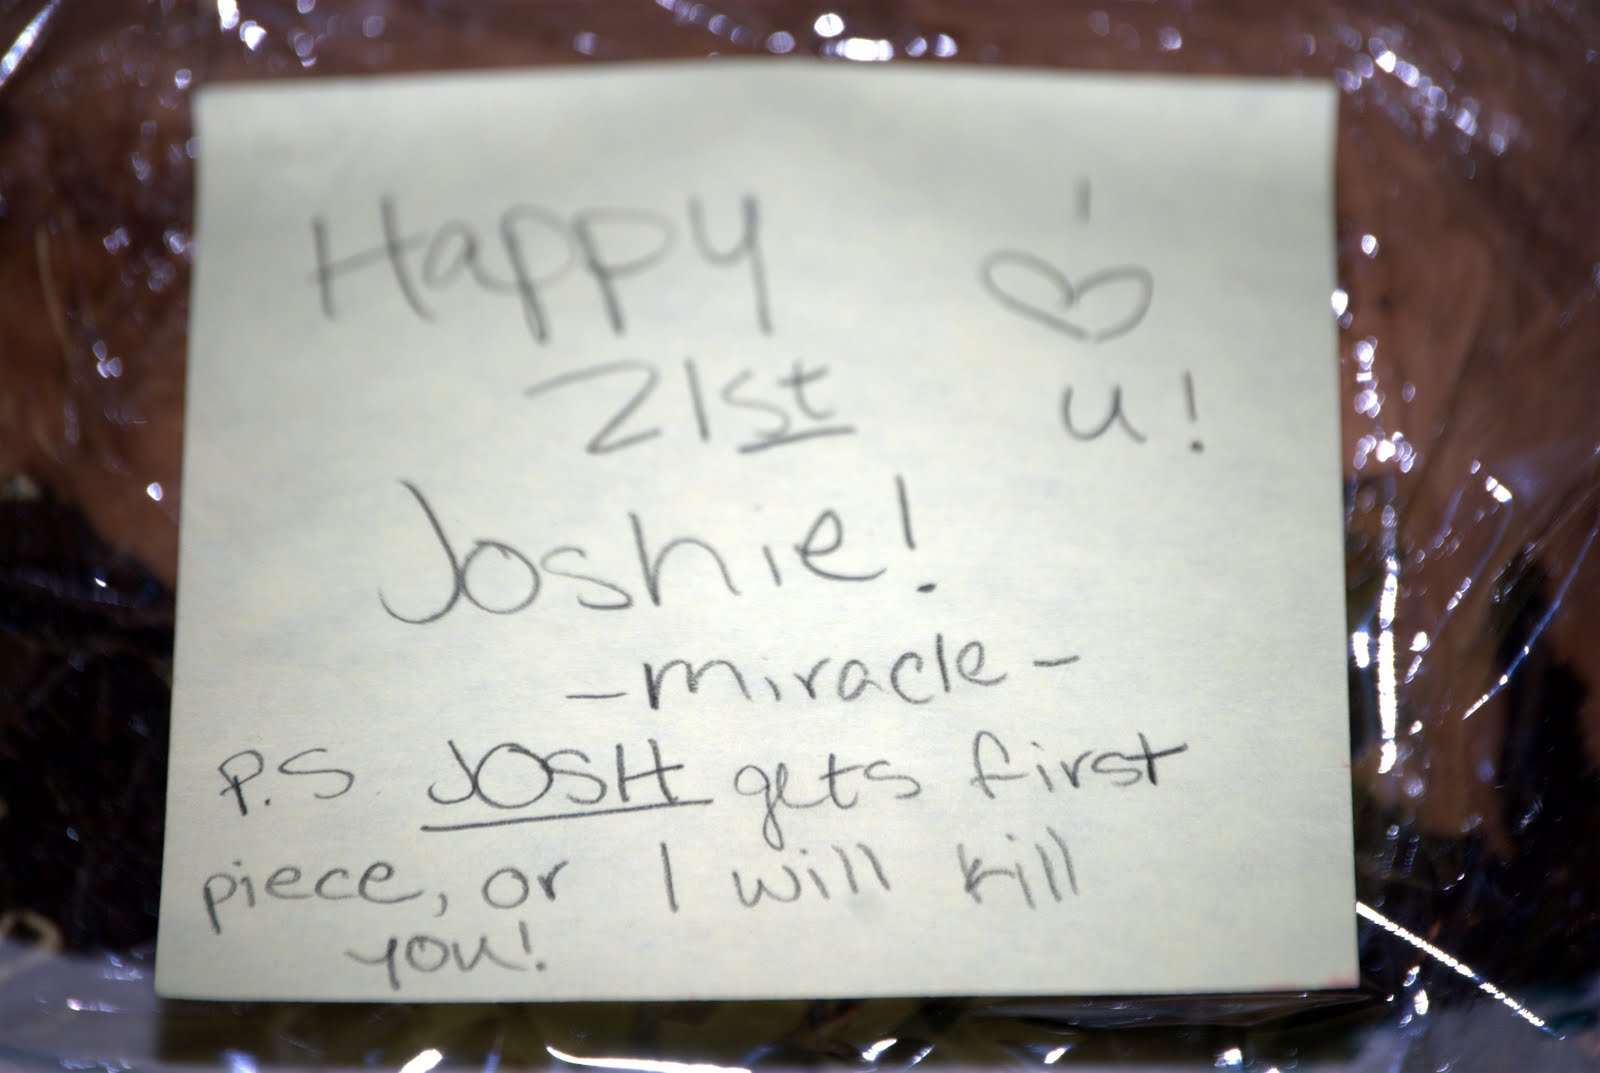 Happy
21st
Joshie!
-miracle-
P.S JOSH gets first
piece, or I will kill
you!
I
♡
u!